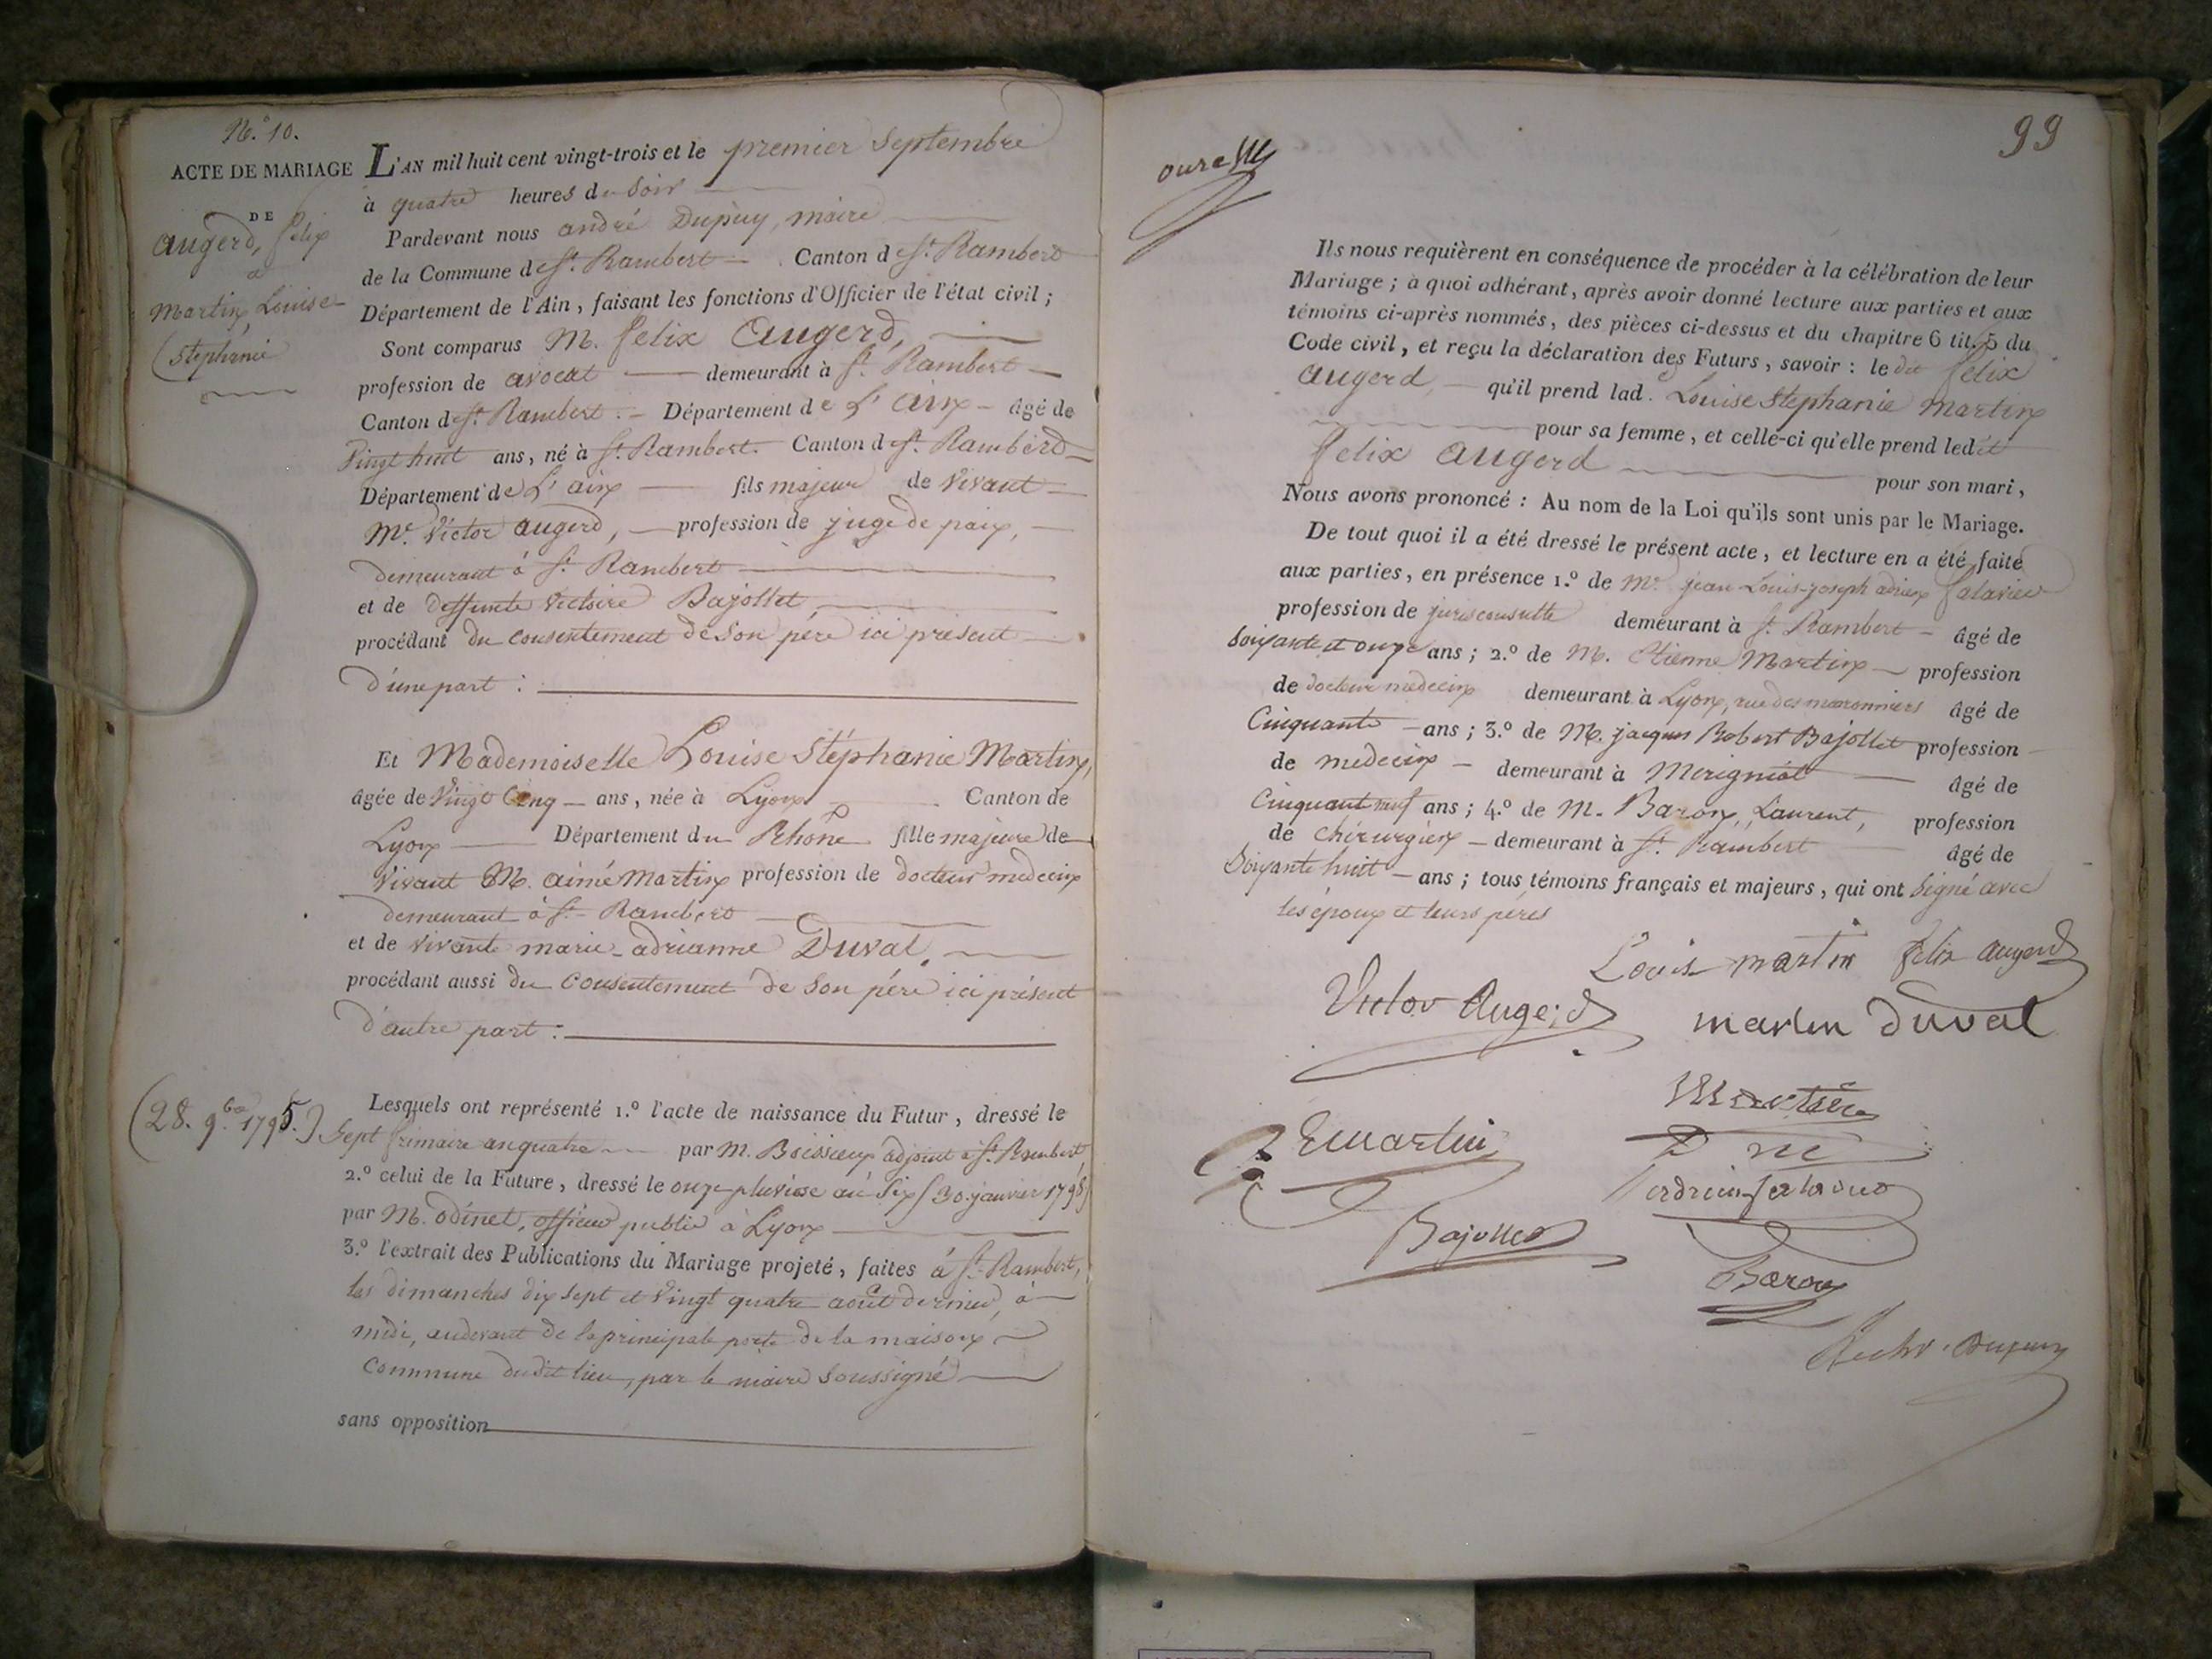 N.° 10.
ACTE DE MARIAGE
DE
augerd, felix
a
martin, Louise
Stephanie
L'AN mil huit cent vingt-trois et le premier Septembre
à quatre heures du Soir
Pardevant nous andré Dupuy, maire
de la Commune de St. Rambert Canton de St. Rambert
Département de l'Ain, faisant les fonctions d'Officier de l'état civil;
Sont comparus M. felix Augerd,
profession de avocat demeurant à St. Rambert
Canton de St. Rambert Département de L'ain âgé de
Vingt huit ans, né à St. Rambert Canton de St. Rambert
Département de L'ain fils majeur de vivant
Mr. Victor augerd, profession de juge de paix,
demeurant à St. Rambert
et de deffunte Victoire Bajollet
procédant du consentement de Son père ici présent
d'une part :
Et Mademoiselle Louise Stéphanie Martin,
âgée de Vingt Cinq ans, née à Lyon Canton de
Lyon Département du Rhône fille majeure de
Vivant M. aimé Martin profession de docteur medecin
demeurant à St. Rambert
et de vivante marie-adrianne Duval,
procédant aussi du consentement de Son père ici présent
d'autre part :
(28. 9bre 1795.)
Lesquels ont représenté 1.° l'acte de naissance du Futur, dressé le
Sept frimaire an quatre par M. Boissieux adjoint à St. Rambert
2.° celui de la Future, dressé le onze pluviose an Six (30. janvier 1798)
par M. odinet, officier public à Lyon
3.° l'extrait des Publications du Mariage projeté, faites à St. Rambert,
les dimanches dix Sept et Vingt quatre août dernier, à
midi, audevant de la principale porte de la maison
Commune dudit lieu, par le maire Soussigné
sans opposition
99
Ils nous requièrent en conséquence de procéder à la célébration de leur
Mariage; à quoi adhérant, après avoir donné lecture aux parties et aux
témoins ci-après nommés, des pièces ci-dessus et du chapitre 6 tit. 5 du
Code civil, et reçu la déclaration des Futurs, savoir : le dit felix
augerd, qu'il prend lad. Louise Stephanie Martin
pour sa femme, et celle-ci qu'elle prend ledit
felix augerd pour son mari,
Nous avons prononcé : Au nom de la Loi qu'ils sont unis par le Mariage.
De tout quoi il a été dressé le présent acte, et lecture en a été faite
aux parties, en présence 1.° de Mr. jean-Louis-joseph
profession de jurisconsulte demeurant à St. Rambert âgé de
Soixante et onze ans; 2.° de M. Etienne Martin profession
de docteur medecin demeurant à Lyon, rue des maronniers âgé de
Cinquante ans; 3.° de M. jacques Robert Bajollet profession
de medecin demeurant à Merigniat âgé de
Cinquant neuf ans; 4.° de M. Baron, Laurent, profession
de chirurgien demeurant à St. Rambert âgé de
Soixante huit ans; tous témoins français et majeurs, qui ont Signé avec
les époux et leurs pères
Louis martin felix augerd
Victor Augerd martin Duval
Emartin
Bajollet
Baron
Dupuy